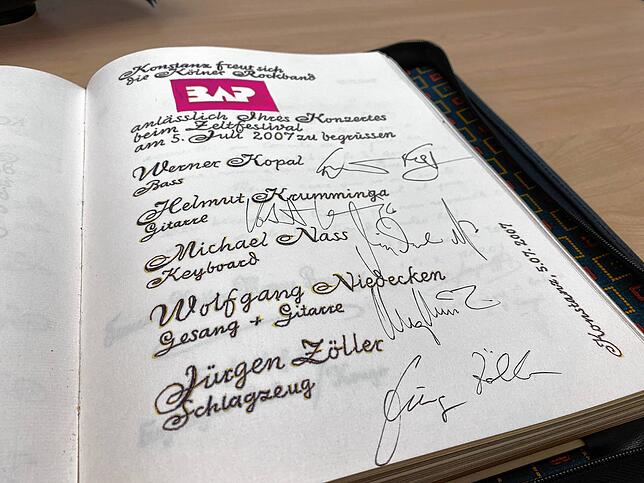 Konstanz freut sich
die Kölner Rockband
BAP
anlässlich Ihres Konzertes
beim Zeltfestival
am 5. Juli 2007 zu begrüssen
Werner Kopal
Bass
Helmut Krumminga
Gitarre
Michael Nass
Keyboard
Wolfgang Niedecken
Gesang + Gitarre
Jürgen Zöller
Schlagzeug
Jürgen Zöller
Konstanz, 5.07.2007